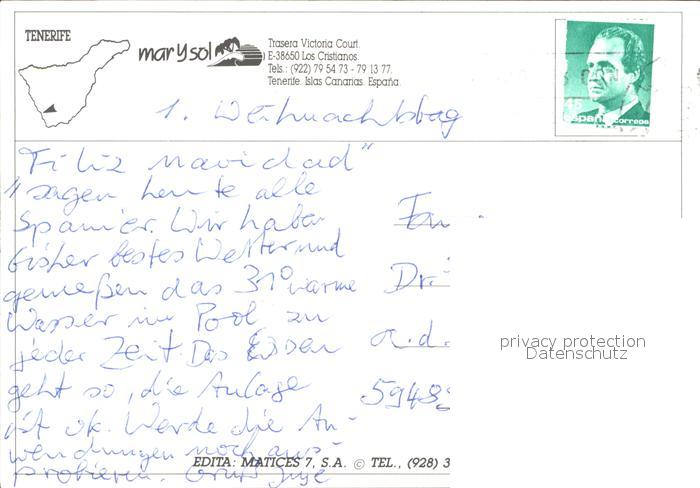 TENERIFE
mar y sol
Trasera Victoria Court.
E-38650 Los Cristianos.
Tels.: (922) 79 54 73 - 79 13 77.
Tenerife. Islas Canarias. España.
45
España correos
1. Weihnachtstag
"Filiz navidad"
sagen heute alle
Spanier. Wir haben
bisher bestes Wetter und
genießen das 31° warme
Wasser im Pool zu
jeder Zeit. Das Essen
geht so, die Anlage
ist ok. Werde die An-
wendungen noch aus-
probieren. Gruß
Dr.
a.d.
5948
privacy protection
Datenschutz
EDITA: MATICES 7, S.A. © TEL., (928) 3